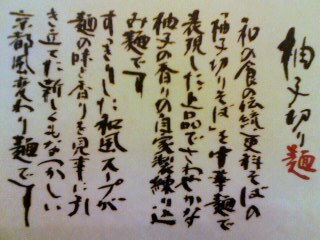 柚子切り麺
和の食の伝統、更科そばの
「柚子切りそば」を中華麺で
表現した上品でさわやかな
柚子の香りの自家製練り込
み麺です
すっきりした和風スープが
麺の味と香りを見事に引
き立てた新しくもなつかしい
京都風変わり麺です